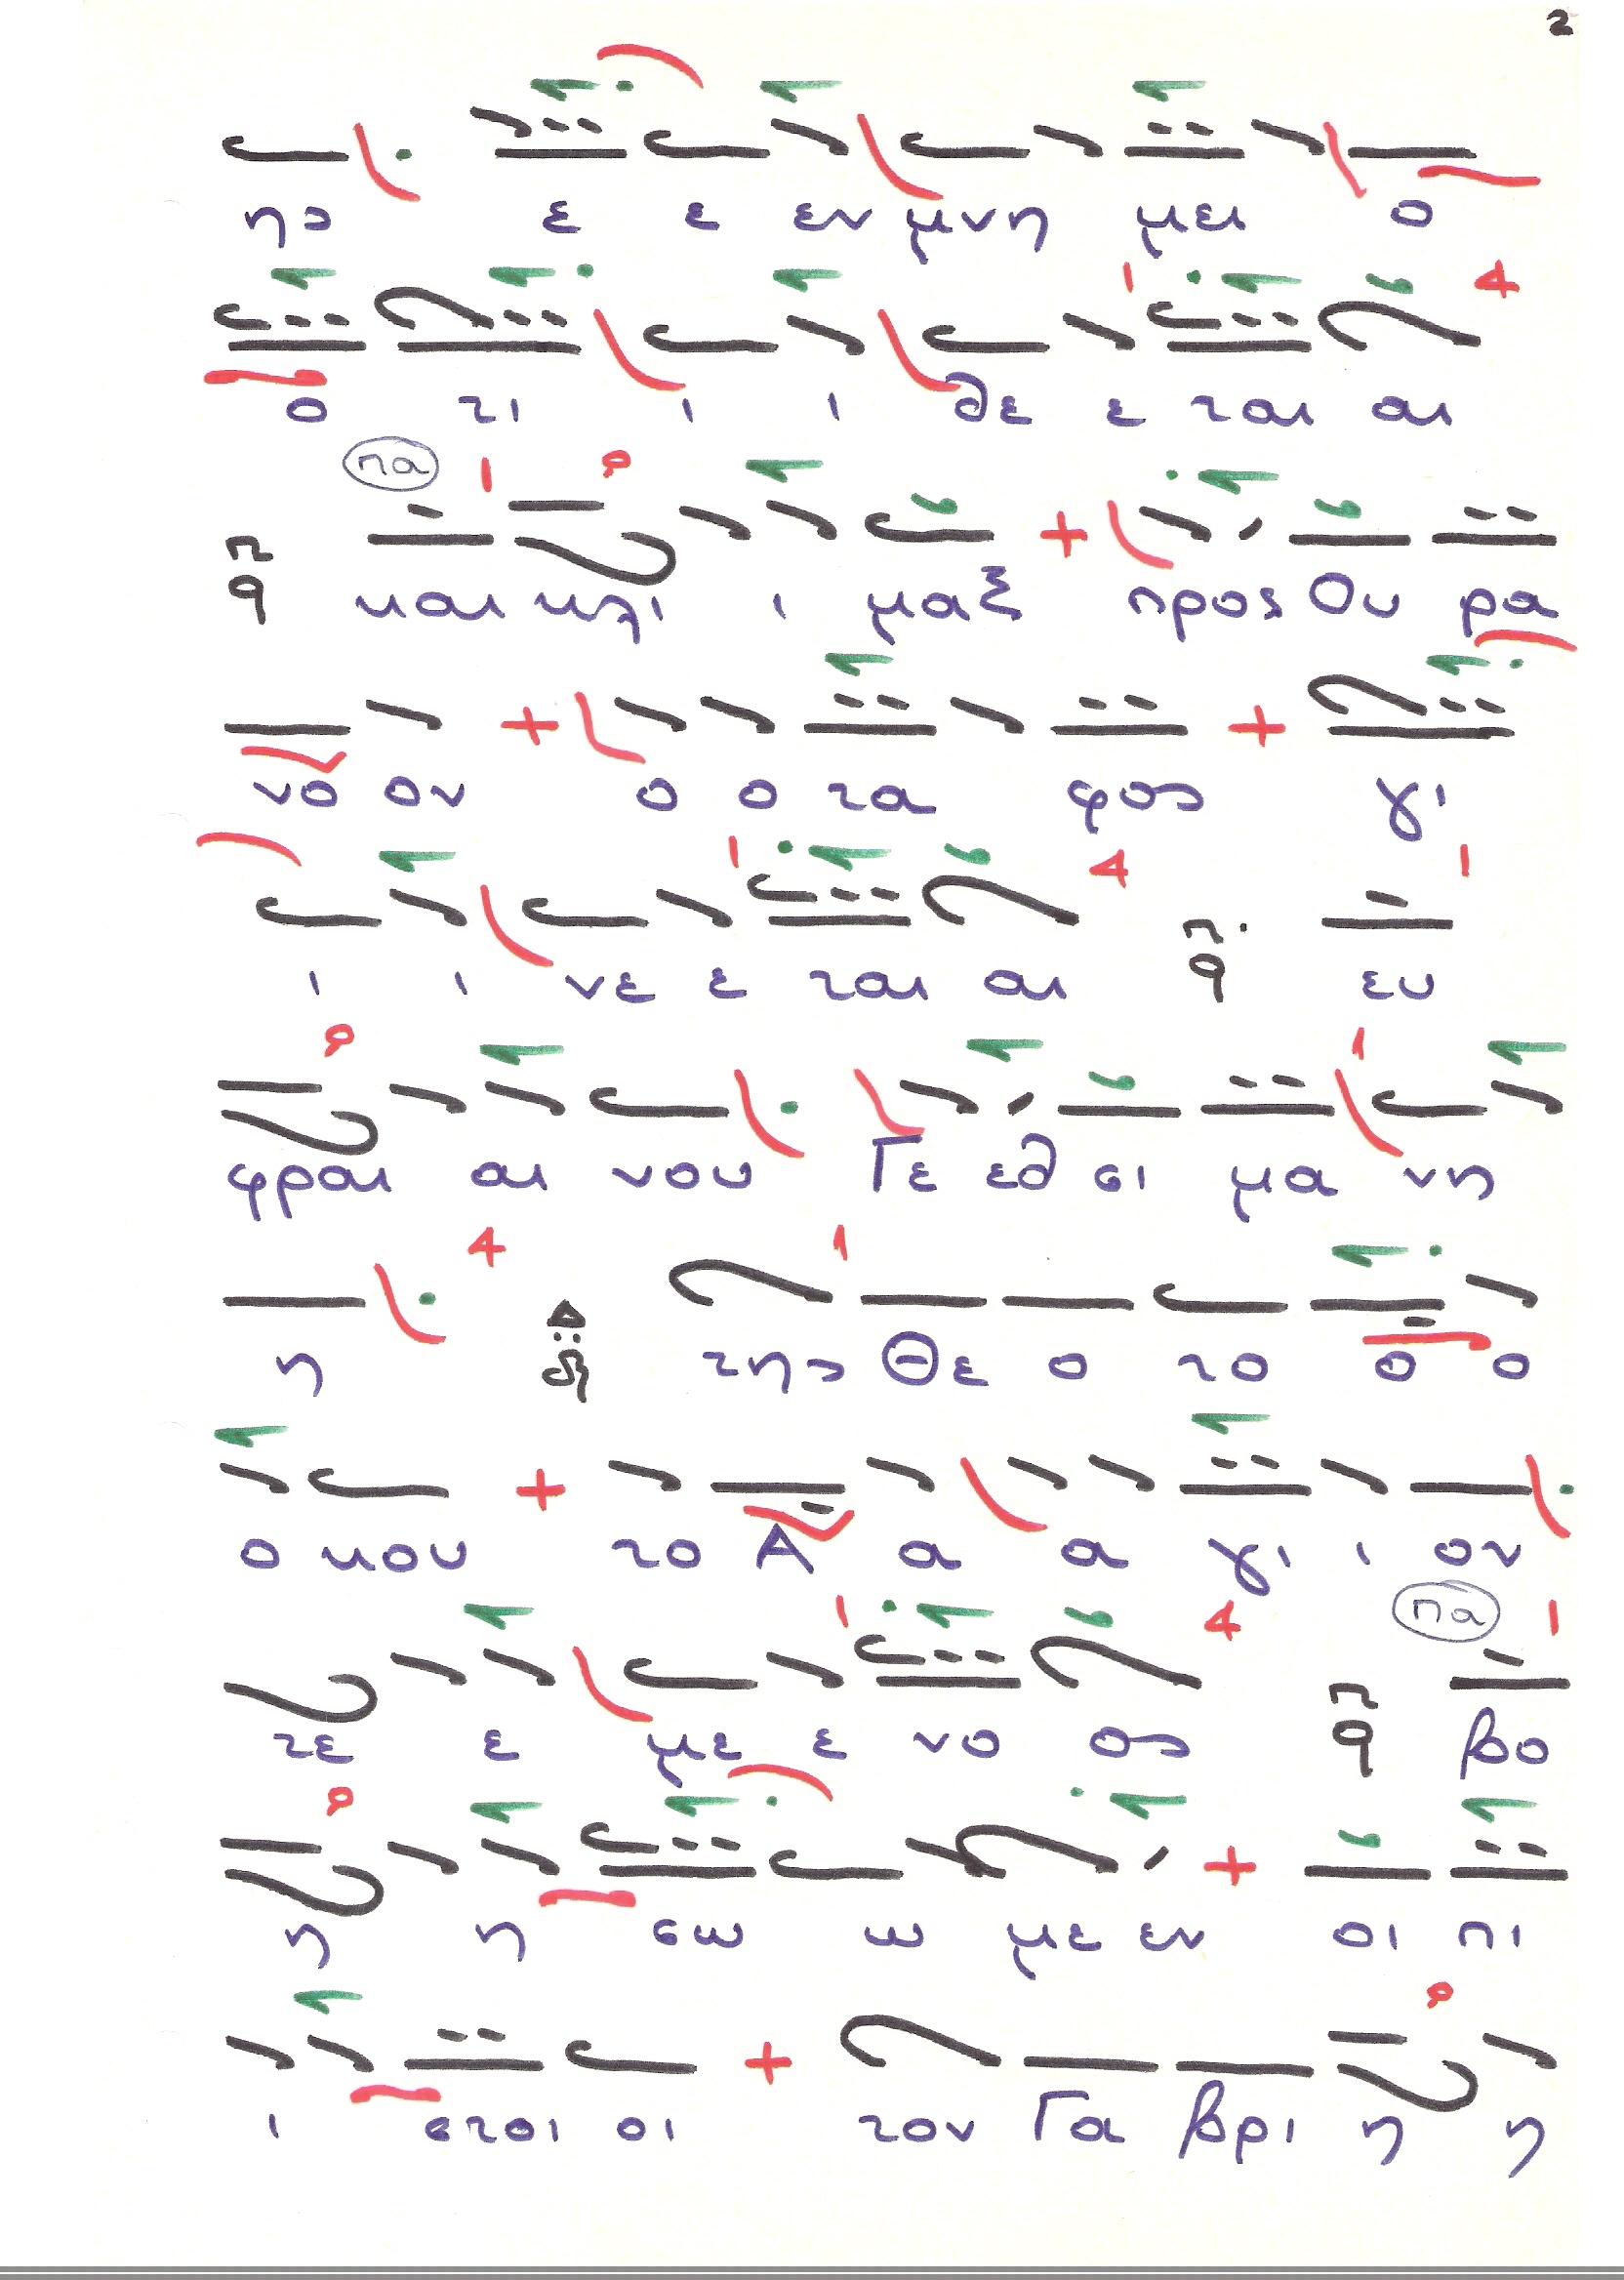 2
ης ε ε εν μνη μει ο
ο τι ι ι θε ε ται αι
πα
και κλι ι μαξ προς Ου ρα
νο ον ο ο τα φος γι
ι ι νε ε ται αι ευ
φραι αι νου Γε εθ ση μα νη
η της Θε ο το ο ο
ο κου το Α α α γι ι ον
πα
τε ε με ε νο ος βο
η η σω ω με εν οι πι
ι στοι οι τον Γα βρι η η